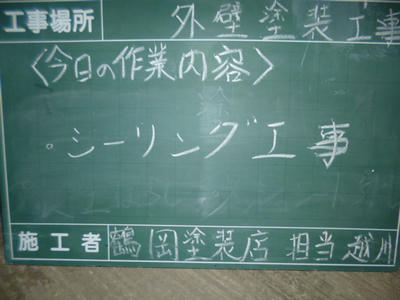 工事場所 外壁塗装工事
〈今日の作業内容〉
。シーリング工事
施工者 鶴岡塗装店 担当越川